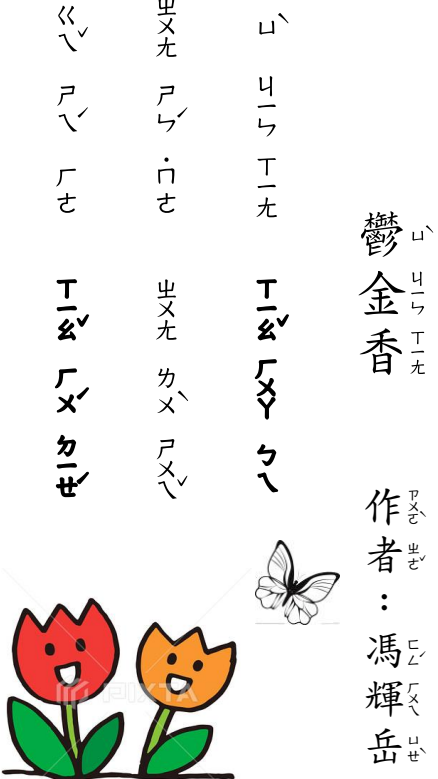 鬱金香 作者：馮輝岳
ㄩˋ ㄐㄧㄣ ㄒㄧㄤ ㄗㄨㄛˋ ㄓㄜˇ ㄈㄥˊ ㄏㄨㄟ ㄩㄝˋ
ㄩˋ ㄐㄧㄣ ㄒㄧㄤ ㄒㄧㄠˇ ㄏㄨㄚ ㄅㄟ
ㄓㄨㄤ ㄕㄣˊ ˙ㄇㄜ ㄓㄨㄤ ㄌㄨˋ ㄕㄨㄟˇ
ㄍㄟˇ ㄕㄟˊ ㄏㄜ ㄒㄧㄠˇ ㄏㄨˊ ㄉㄧㄝˊ
PIXTA